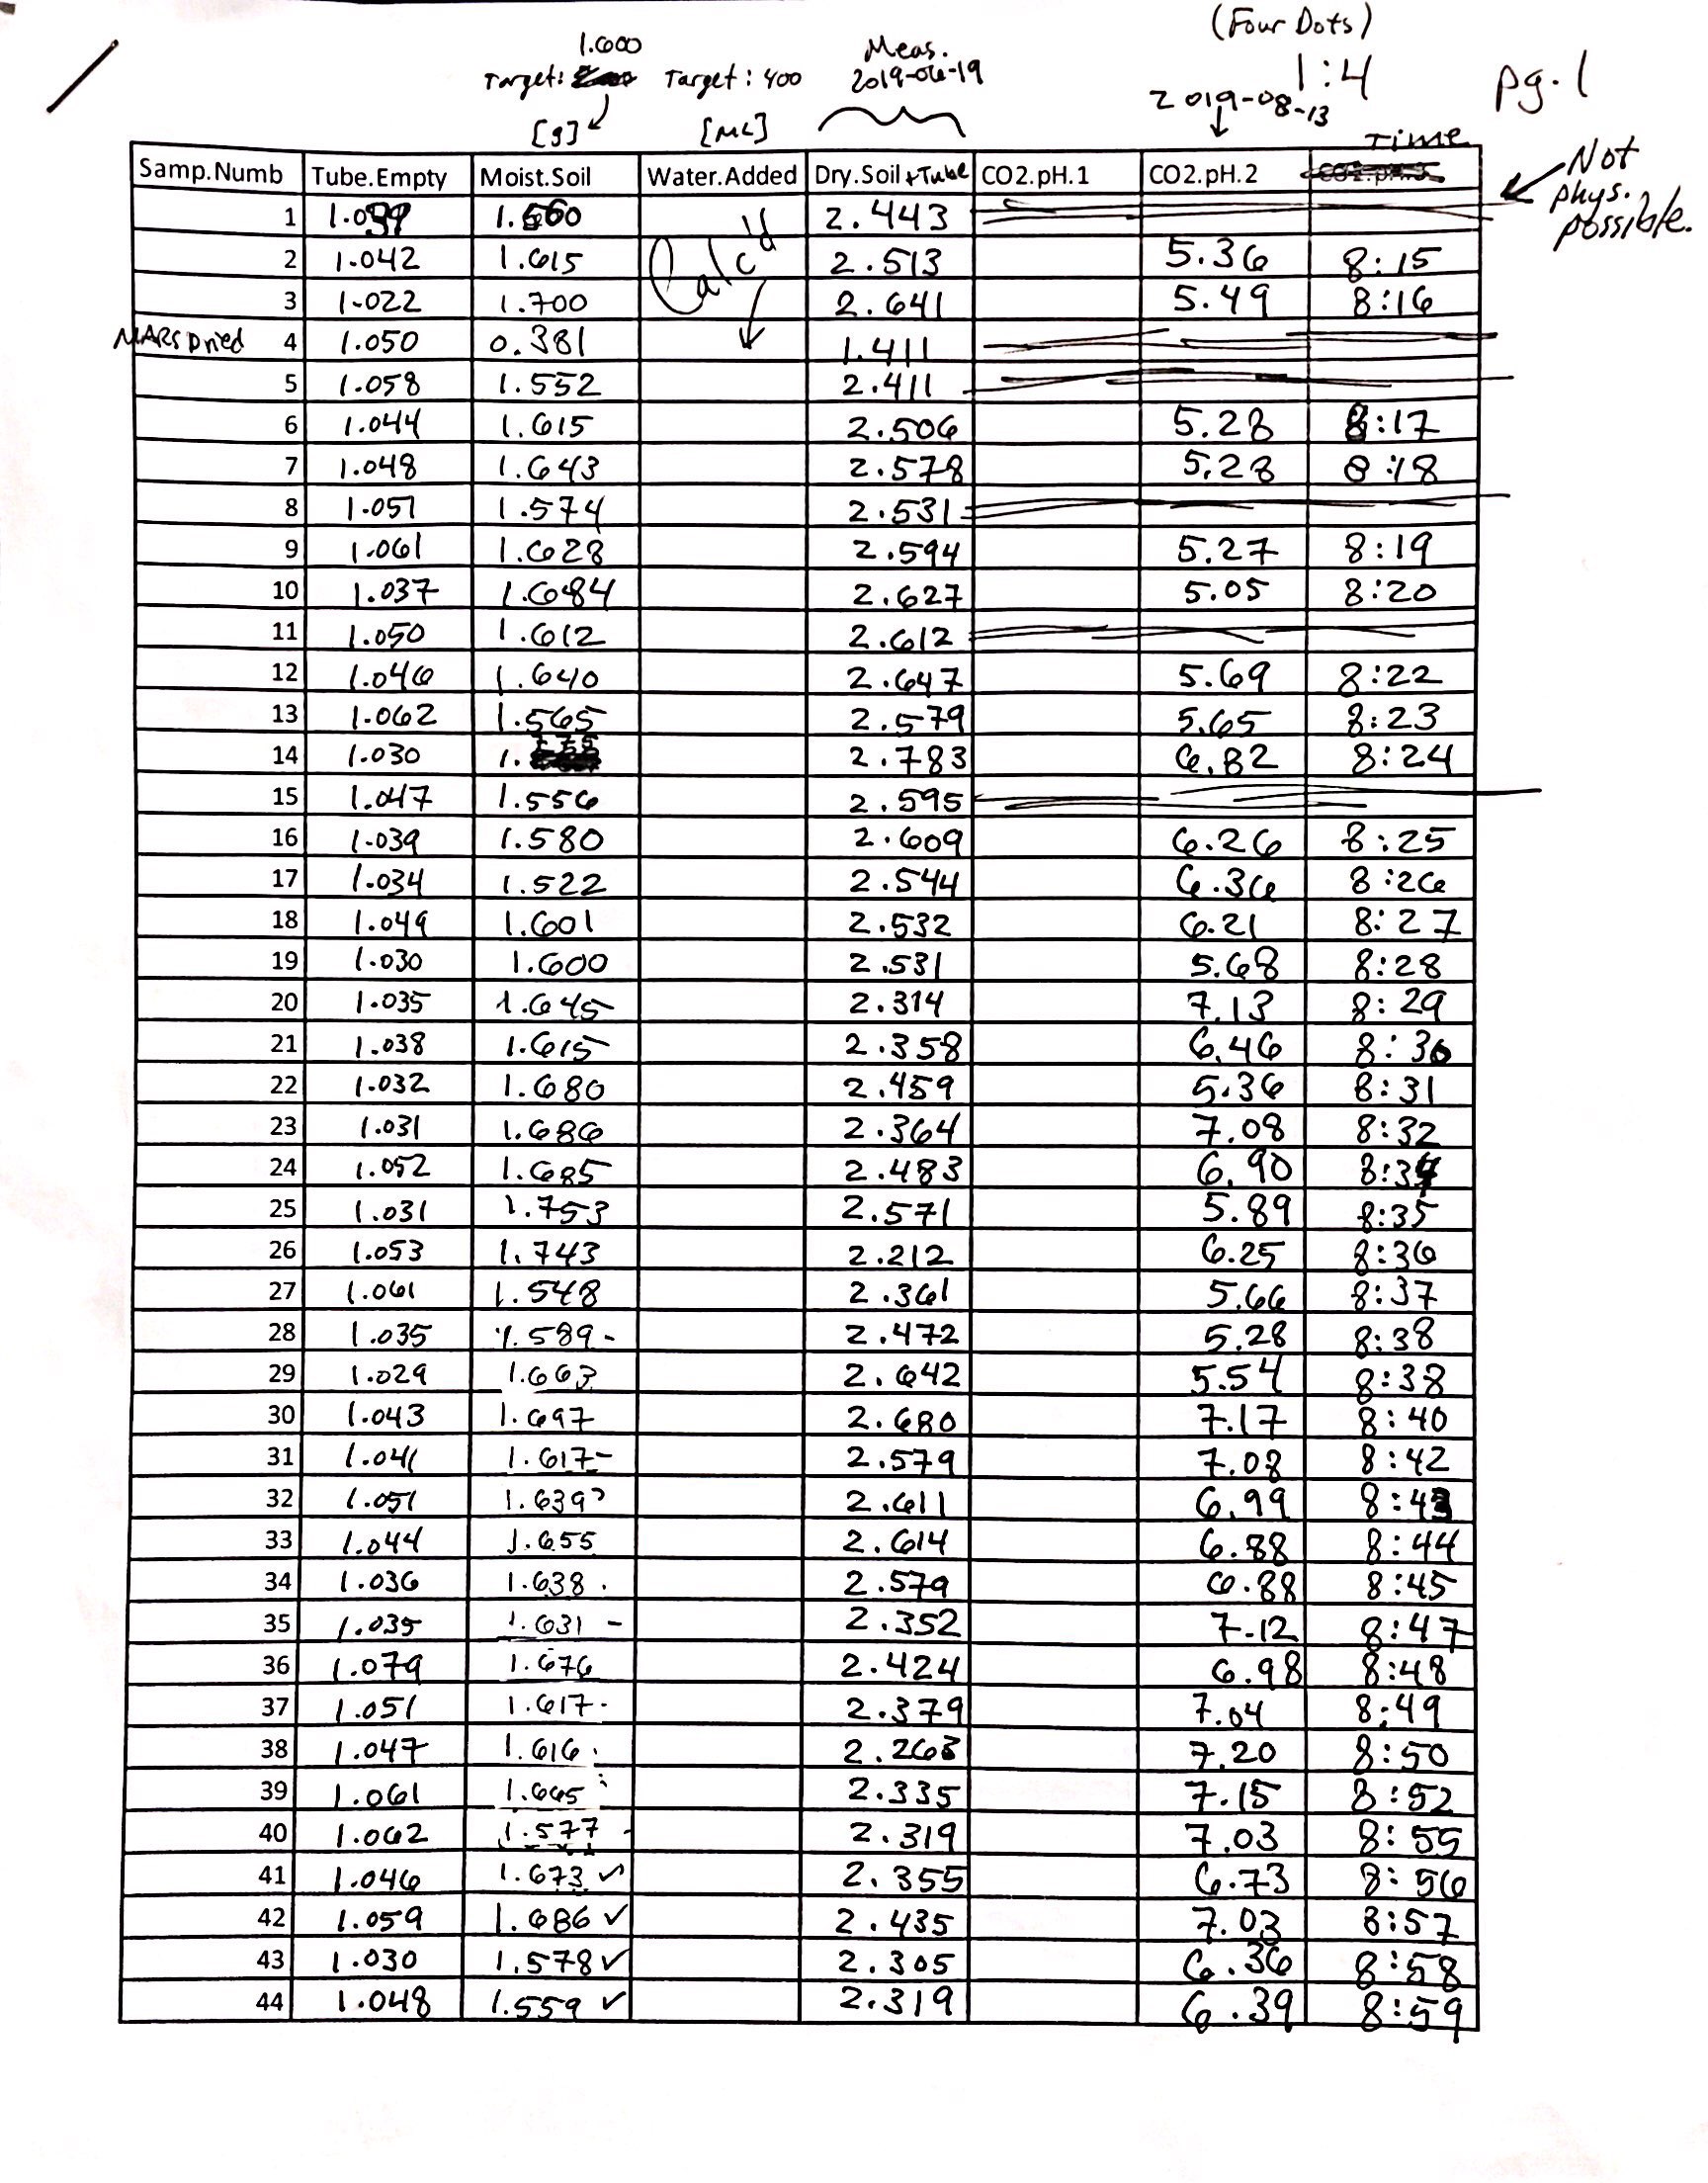 (Four Dots)
1.600
Meas.
1:4
Target: Target: 400
2019-06-19
pg. 1
2019-08-13
[g] [mL]
Time
Not
phys.
possible.
Samp.Numb Tube.Empty Moist.Soil Water.Added Dry.Soil + Tube CO2.pH.1 CO2.pH.2
1 2.443
2 1.042 1.615 Calc'd 2.513 5.36 8:15
3 1.022 1.700 2.641 5.49 8:16
MARS Dried 4 1.050 0.381 1.411
5 1.058 1.552 2.411
6 1.044 1.615 2.506 5.28 8:17
7 1.048 1.643 2.578 5.28 8:18
8 1.051 1.574 2.531
9 1.061 1.628 2.594 5.27 8:19
10 1.037 1.684 2.627 5.05 8:20
11 1.050 1.612 2.612
12 1.046 1.640 2.647 5.69 8:22
13 1.062 1.565 2.579 5.65 8:23
14 1.030 2.783 6.82 8:24
15 1.047 1.556 2.595
16 1.039 1.580 2.609 6.26 8:25
17 1.034 1.522 2.544 6.36 8:26
18 1.049 1.601 2.532 6.21 8:27
19 1.030 1.600 2.531 5.68 8:28
20 1.035 1.645 2.314 7.13 8:29
21 1.038 1.615 2.358 6.46 8:30
22 1.032 1.680 2.459 5.36 8:31
23 1.031 1.686 2.364 7.08 8:32
24 1.052 1.685 2.483 6.90 8:34
25 1.031 1.753 2.571 5.89 8:35
26 1.053 1.743 2.212 6.25 8:36
27 1.061 1.548 2.361 5.66 8:37
28 1.035 1.589 - 2.472 5.28 8:38
29 1.029 1.663 2.642 5.54 8:38
30 1.043 1.697 2.680 7.17 8:40
31 1.041 1.617 - 2.579 7.08 8:42
32 1.051 1.639 2.611 6.99 8:43
33 1.044 1.655 2.614 6.88 8:44
34 1.036 1.638 2.579 6.88 8:45
35 1.035 1.631 - 2.352 7.12 8:47
36 1.079 1.676 2.424 6.98 8:48
37 1.051 1.617 2.379 7.04 8:49
38 1.047 1.616 2.263 7.20 8:50
39 1.061 1.665 2.335 7.15 8:52
40 1.062 1.577 2.319 7.03 8:55
41 1.046 1.673 ✓ 2.355 6.73 8:56
42 1.059 1.686 ✓ 2.435 7.03 8:57
43 1.030 1.578 ✓ 2.305 6.36 8:58
44 1.048 1.559 ✓ 2.319 6.39 8:59